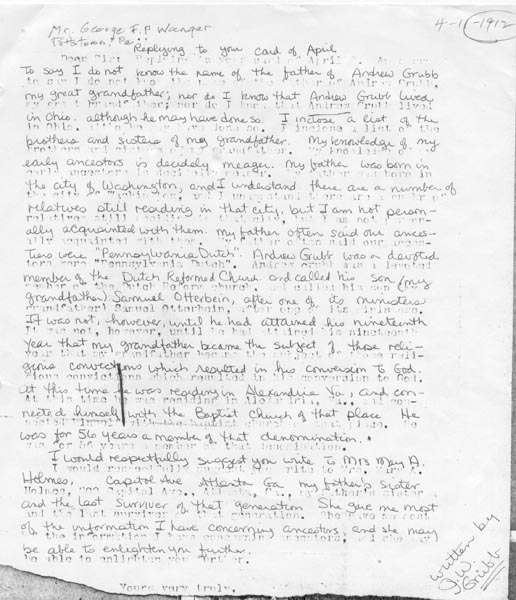 4-11-1912
Mr. George F. P. Wanger
Pottstown, Pa.
Replying to your card of April
To say I do not know the name of the father of Andrew Grubb
my great grandfather, nor do I know that Andrew Grubb lived
in Ohio. although he may have done so. I inclose a list of the
brothers and sisters of my grandfather. My knowledge of my
early ancestors is decidely meager. My father was born in
the city of Washington, and I understand there are a number of
relatives still residing in that city, but I am not person-
ally acquainted with them. My father often said our ances-
tors were "Pennsylvania Dutch". Andrew Grubb was a devoted
member of the Dutch Reformed Church and called his son (my
grandfather) Samuel Otterbein, after one of its ministers
It was not, however, until he had attained his nineteenth
year that my grandfather became the subject of those reli-
gious convections which resulted in his conversion to God.
At this time he was residing in Alexandria Va, and con-
nected himself with the Baptist Church of that place. He
was for 56 years a member of that denomination.
I would respectfully suggest you write to Mrs Mary A.
Holmes, Capitol Ave Atlanta Ga my father's sister
and the last survivor of that generation. She gave me most
of the information I have concerning ancestors, and she may
be able to enlighten you further.
Yours very truly,
written by
J.W.
Grubb